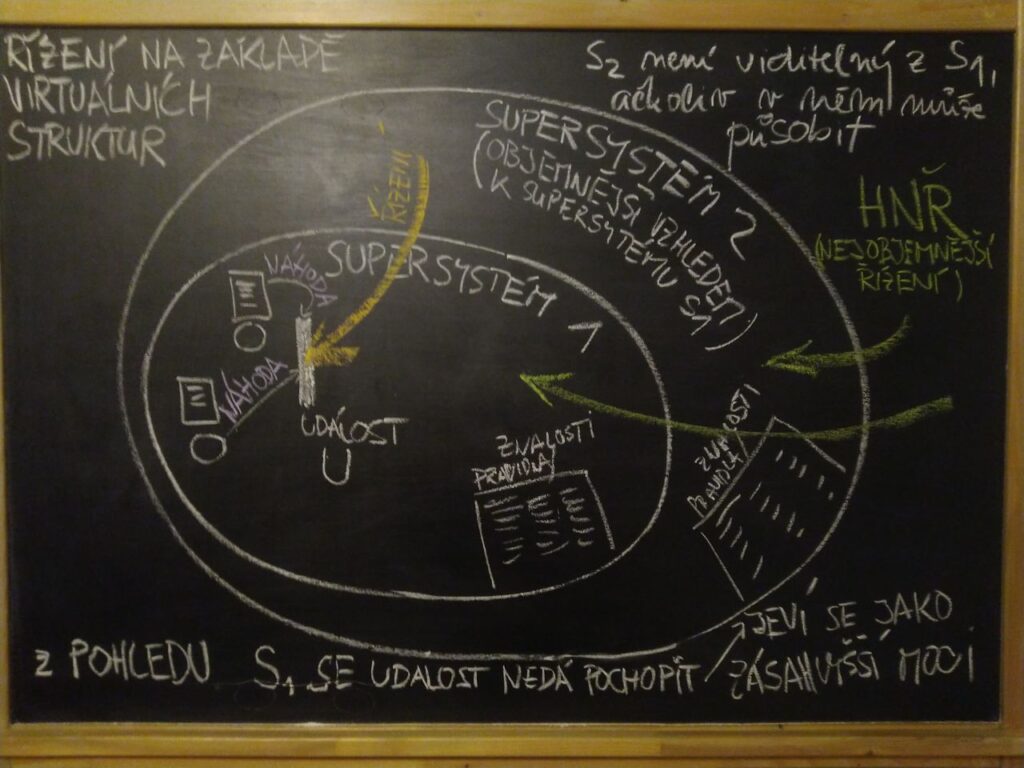 ŘÍZENÍ NA ZÁKLADĚ
VIRTUÁLNÍCH
STRUKTUR
S2 není viditelný z S1,
ačkoliv v něm může
působit
SUPERSYSTÉM 2
(OBJEMNĚJŠÍ VZHLEDEM
K SUPERSYTÉMU S1)
HNŘ
(NEJOBJEMNĚJŠÍ
ŘÍZENÍ)
ŘÍZENÍ
SUPERSYSTÉM 1
NÁHODA
NÁHODA
UDÁLOST
U
ZNALOSTI
PRAVIDLA
ZNALOSTI
PRAVIDLA
Z POHLEDU S1 SE UDALOST NEDÁ POCHOPIT
JEVÍ SE JAKO
ZÁSAH VYŠŠÍ MOCI